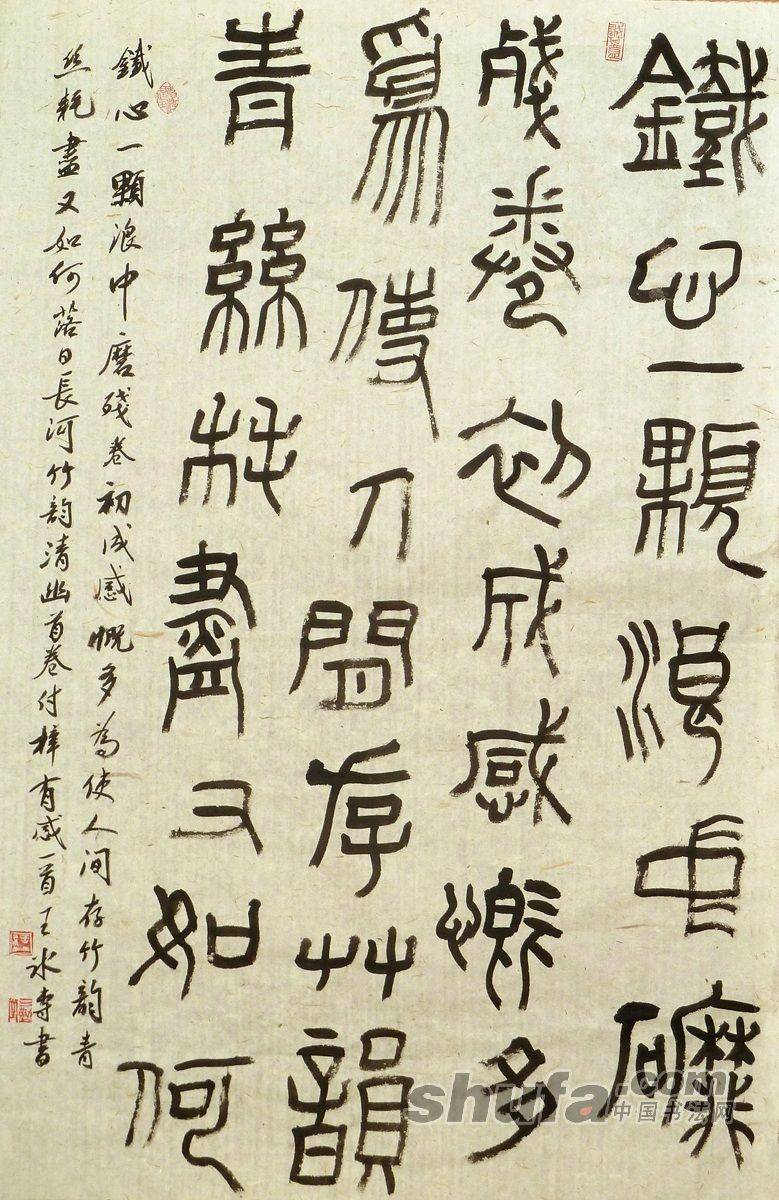 鐵心一顆浪中磨
殘卷初成感慨多
爲使人間存竹韻
青絲耗盡又如何
鐵心一顆浪中磨殘卷初成感慨多為使人间存竹韵青
丝耗盡又如何 落日長河竹韵清幽首卷付梓有感一首 王冰書
shufa.com
中国书法网